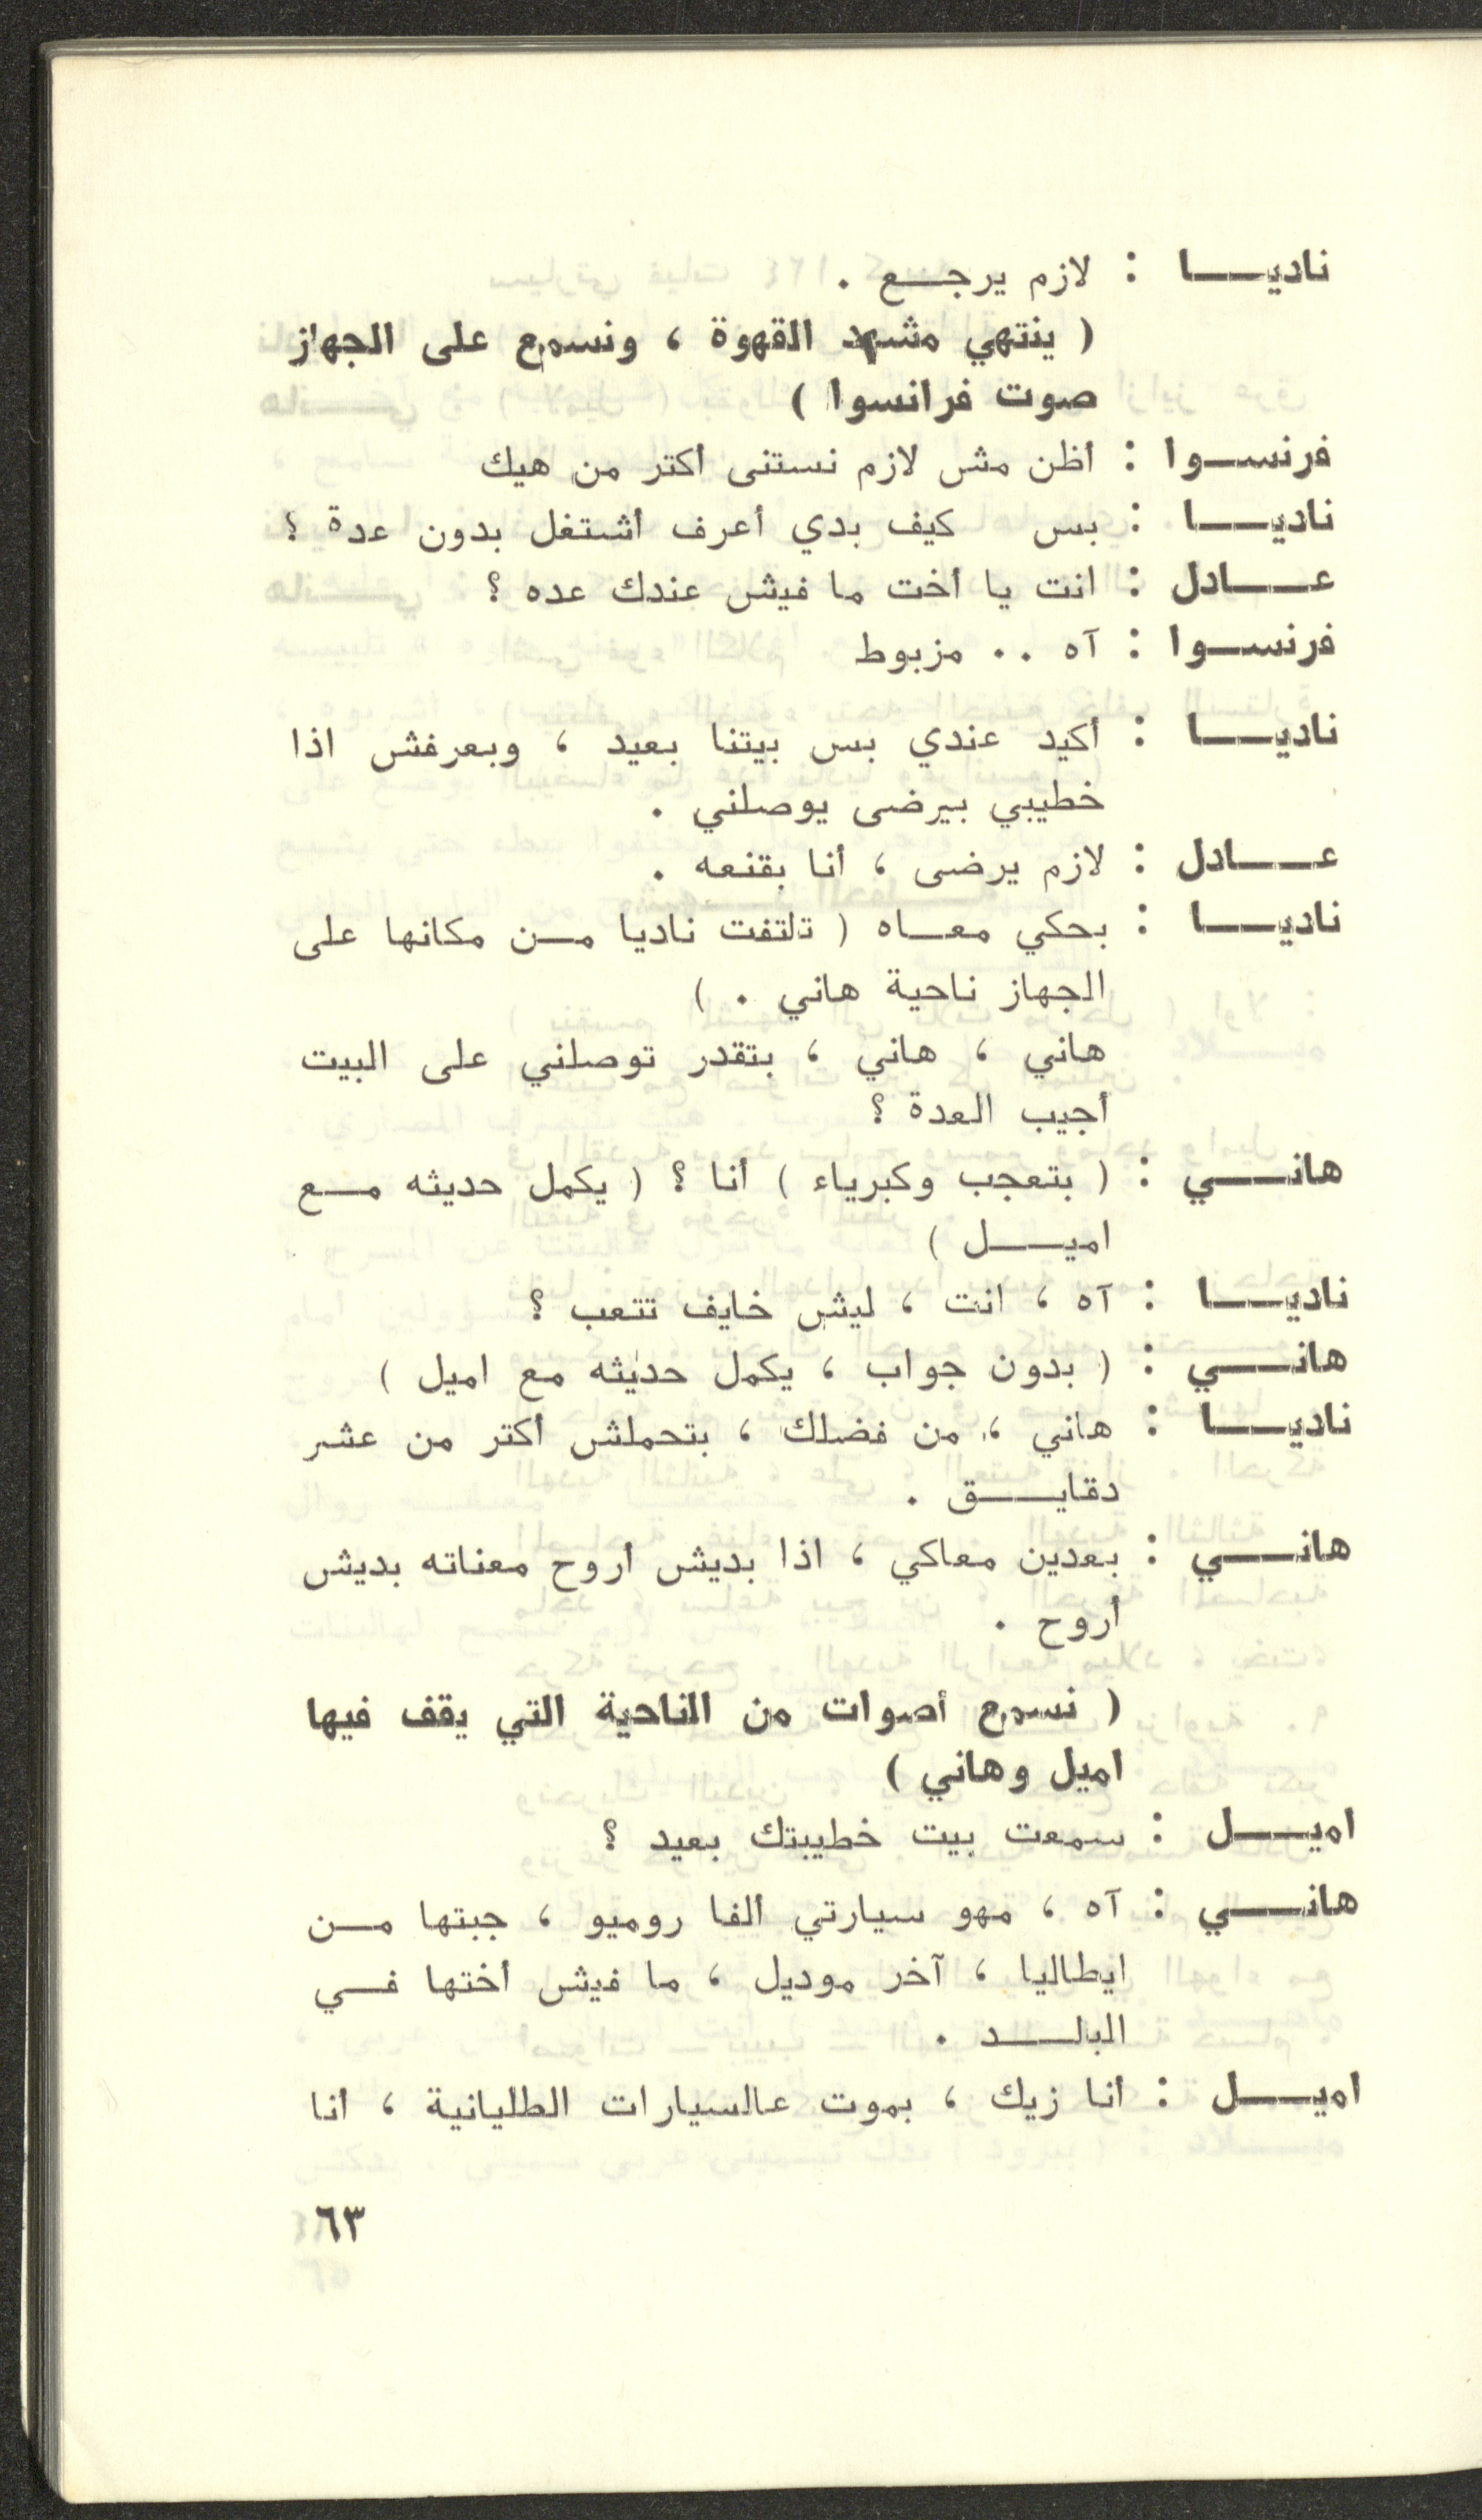 ناديا : لازم يرجع .
( ينتهي مشهد القهوة ، ونسمع على الجهاز
صوت فرانسوا )
فرنسوا : أظن مش لازم نستنى أكتر من هيك
ناديا : بس كيف بدي أعرف أشتغل بدون عدة ؟
عادل : انت يا أخت ما فيش عندك عده ؟
فرنسوا : آه .. مزبوط
ناديا : أكيد عندي بس بيتنا بعيد ، وبعرفش اذا
خطيبي بيرضى يوصلني .
عادل : لازم يرضى ، أنا بقنعه .
ناديا : بحكي معاه ( تلتفت ناديا من مكانها على
الجهاز ناحية هاني . )
هاني ، هاني ، بتقدر توصلني على البيت
أجيب العدة ؟
هاني : ( بتعجب وكبرياء ) أنا ؟ ( يكمل حديثه مع
اميل )
ناديا : آه ، انت ، ليش خايف تتعب ؟
هاني : ( بدون جواب ، يكمل حديثه مع اميل )
ناديا : هاني ، من فضلك ، بتحملش أكتر من عشر
دقايق .
هاني : بعدين معاكي ، اذا بديش أروح معناته بديش
أروح .
( نسمع أصوات من الناحية التي يقف فيها
اميل وهاني )
اميل : سمعت بيت خطيبتك بعيد ؟
هاني : آه ، مهو سيارتي ألفا روميو ، جبتها من
ايطاليا ، آخر موديل ، ما فيش أختها في
البلد .
اميل : أنا زيك ، بموت عالسيارات الطليانية ، أنا
٦٣